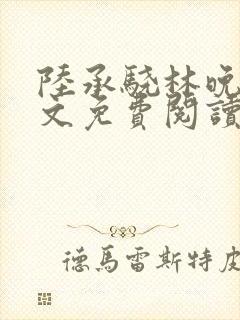 陸承驍林晚
文免費閱讀
德馬雷斯特皮